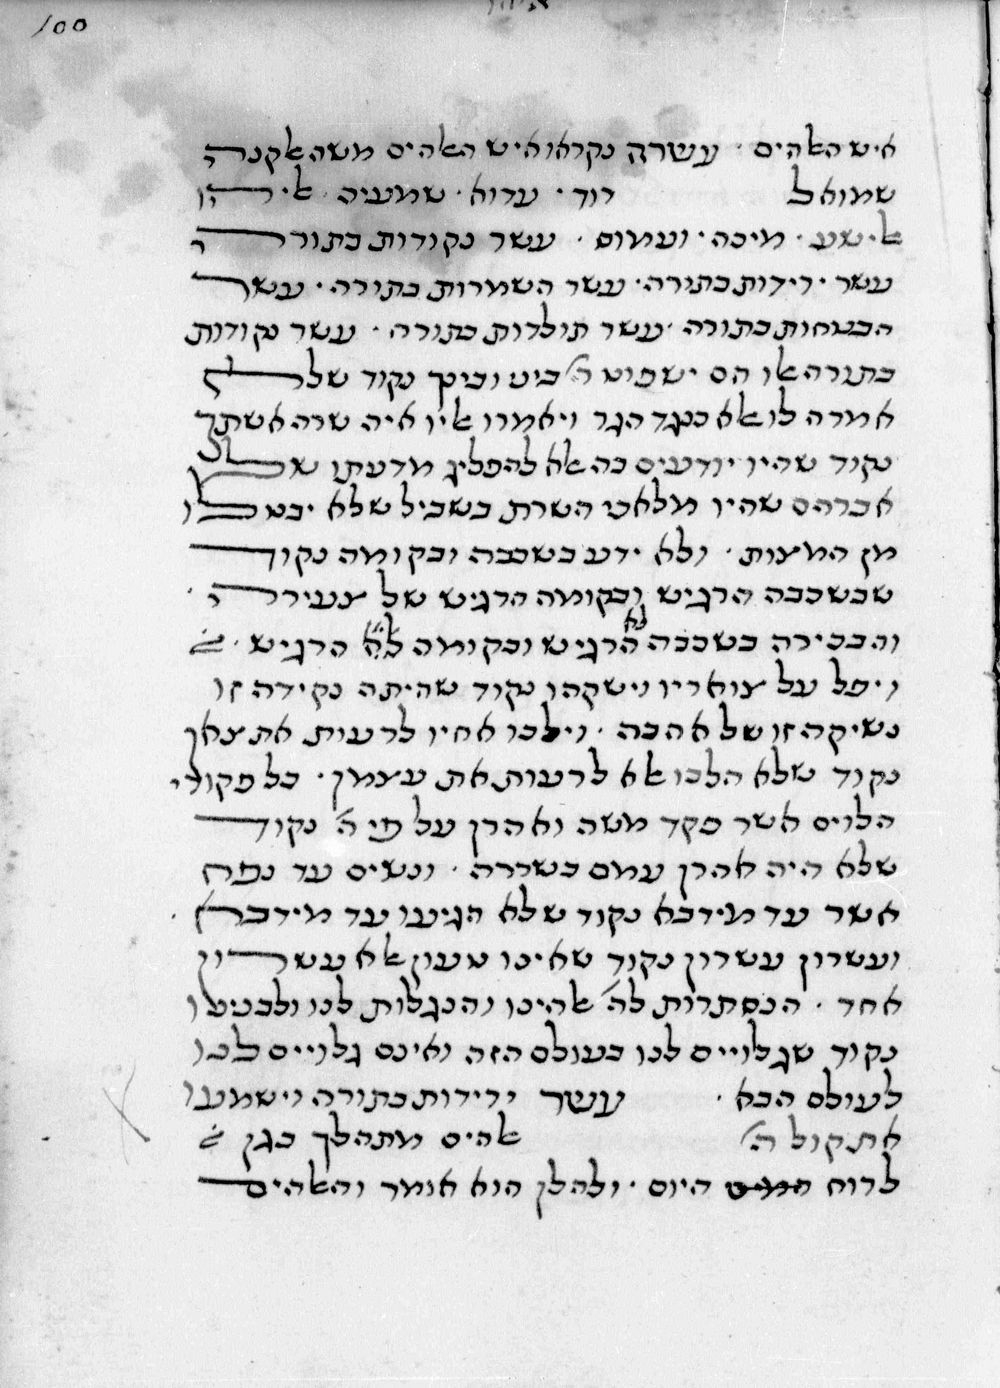 100
איש האהים · עשרה נקראו איש האהים משה אקנה
שמואל דוד · עדוא · שמעיה · אליהו
אלישע · מיכה · ועמוס · עשר נקודות בתורה
עשר · רידות בתורה · עשר השמרות בתורה · עשר
הבטחות בתורה · עשר תולדות בתורה · עשר נקודות
בתורה אלו הם ישפוט ה׳ ביני וביניך נקוד שלא
אמרה לו אלא כנגד הגר ויאמרו אליו איה שרה אשתך
נקוד שהיו יודעים בה אלא להפליג מדעתו של
אברהם שהיו מלאכי השרת בשביל שלא יבטלו
מן המצות · ולא ידע בשכבה ובקומה נקוד
שבשכבה הרגיש ובקומה הרגיש של צעירה ·
והבכירה בשכבה לא הרגיש ובקומה לא הרגיש ·
ויפל על צואריו וישקהו נקוד שהיתה נקידה זו
נשיקה זו של אהבה · וילכו אחיו לרעות את צאן
נקוד שלא הלכו אלא לרעות את עצמן · כל פקודי
הלוים אשר פקד משה ואהרן על פי ה׳ נקוד
שלא היה אהרן עמם בשררה · ונשים עד נפח
אשר עד מידבא נקוד שלא הגיעו עד מידבא ·
ועשרון עשרון נקוד שאינו טעון אלא עשרון
אחד · הנסתרות לה׳ אלהינו והנגלות לנו ולבנינו
נקוד שגלויים לנו בעולם הזה ואינם גלויים לנו
לעולם הבא · עשר ירידות בתורה וישמעו
את קול ה׳ אלהים מתהלך בגן
לרוח היום · ולהלן הוא אומר והאהים